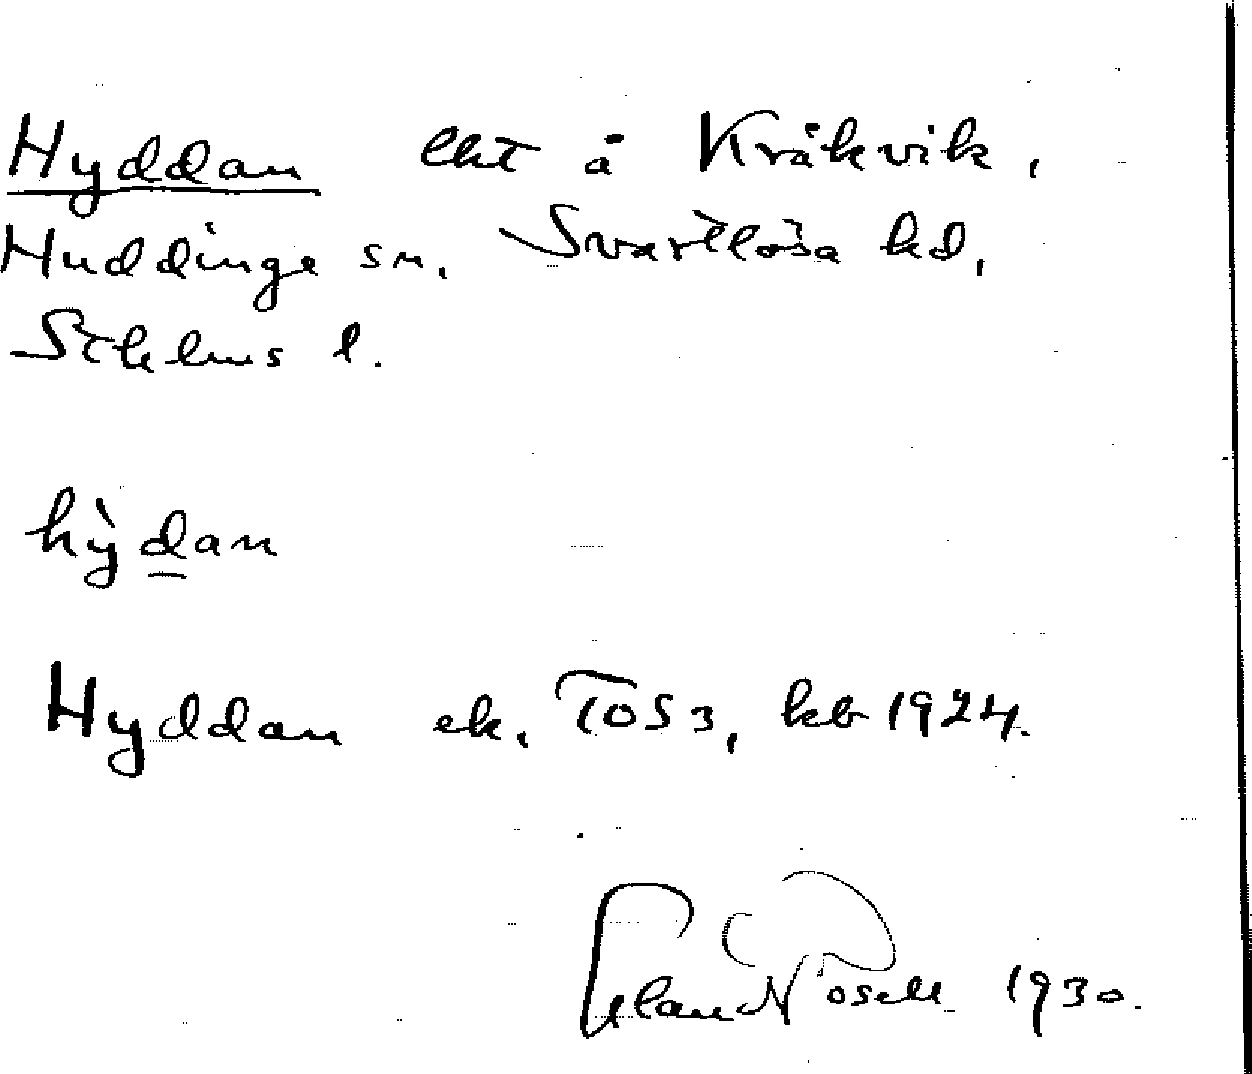 Hyddan lht å Kråkvik,
Huddinge sn. Svartlösa hd,
Sthlms l.
hỳdan
Hyddan ek. TOS3, kb 1924.
Rosell 1930.